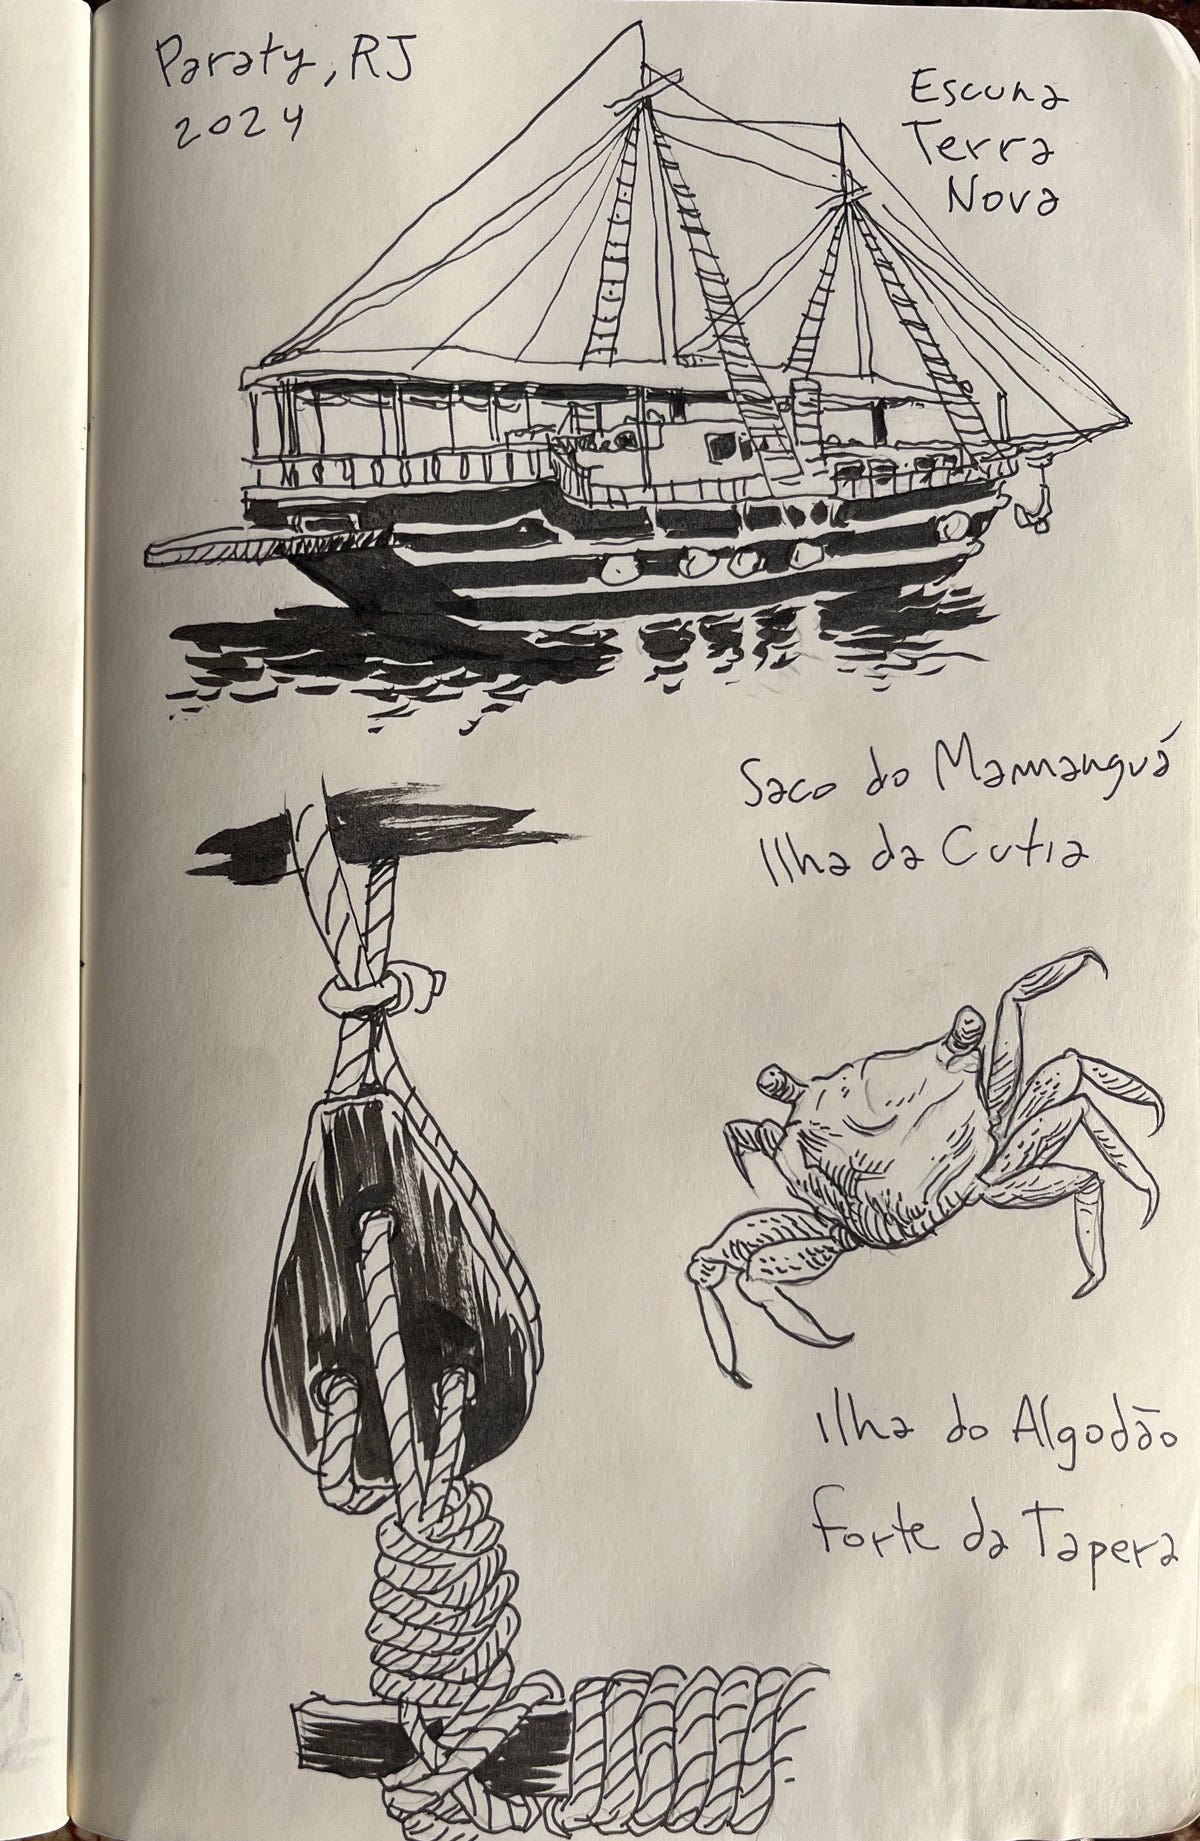 Paraty, RJ
2024
Escuna
Terra
Nova
Saco do Mamanguá
Ilha da Cutia
Ilha do Algodão
Forte da Tapera